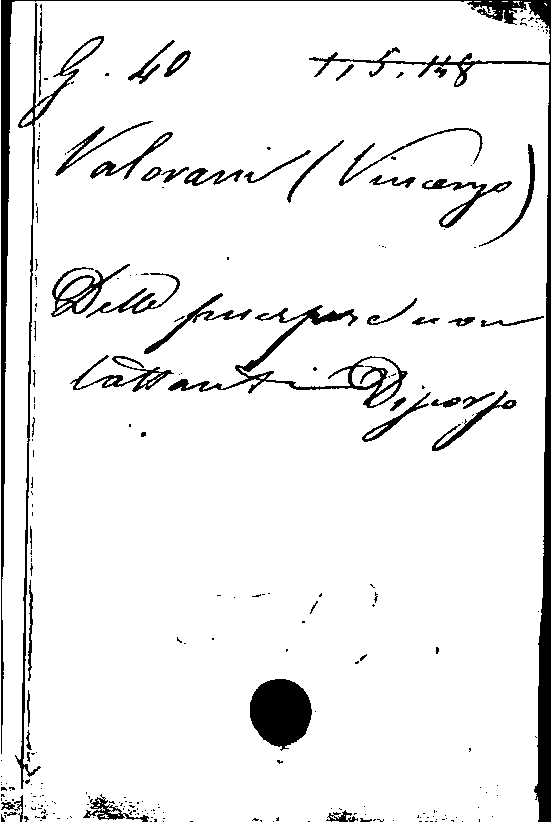 G. 40 1, 5, 148
Valorani (Vincenzo)
Delle puerpere non
lattanti Discorso